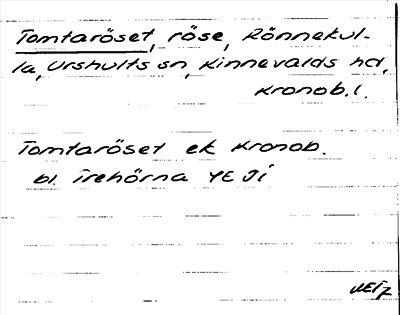 Tomtaröset, röse, Rönnekul-
la, Urshults sn, Kinnevalds hd,
Kronob. l.
Tomtaröset ek Kronob.
bl. Trehörna 4E